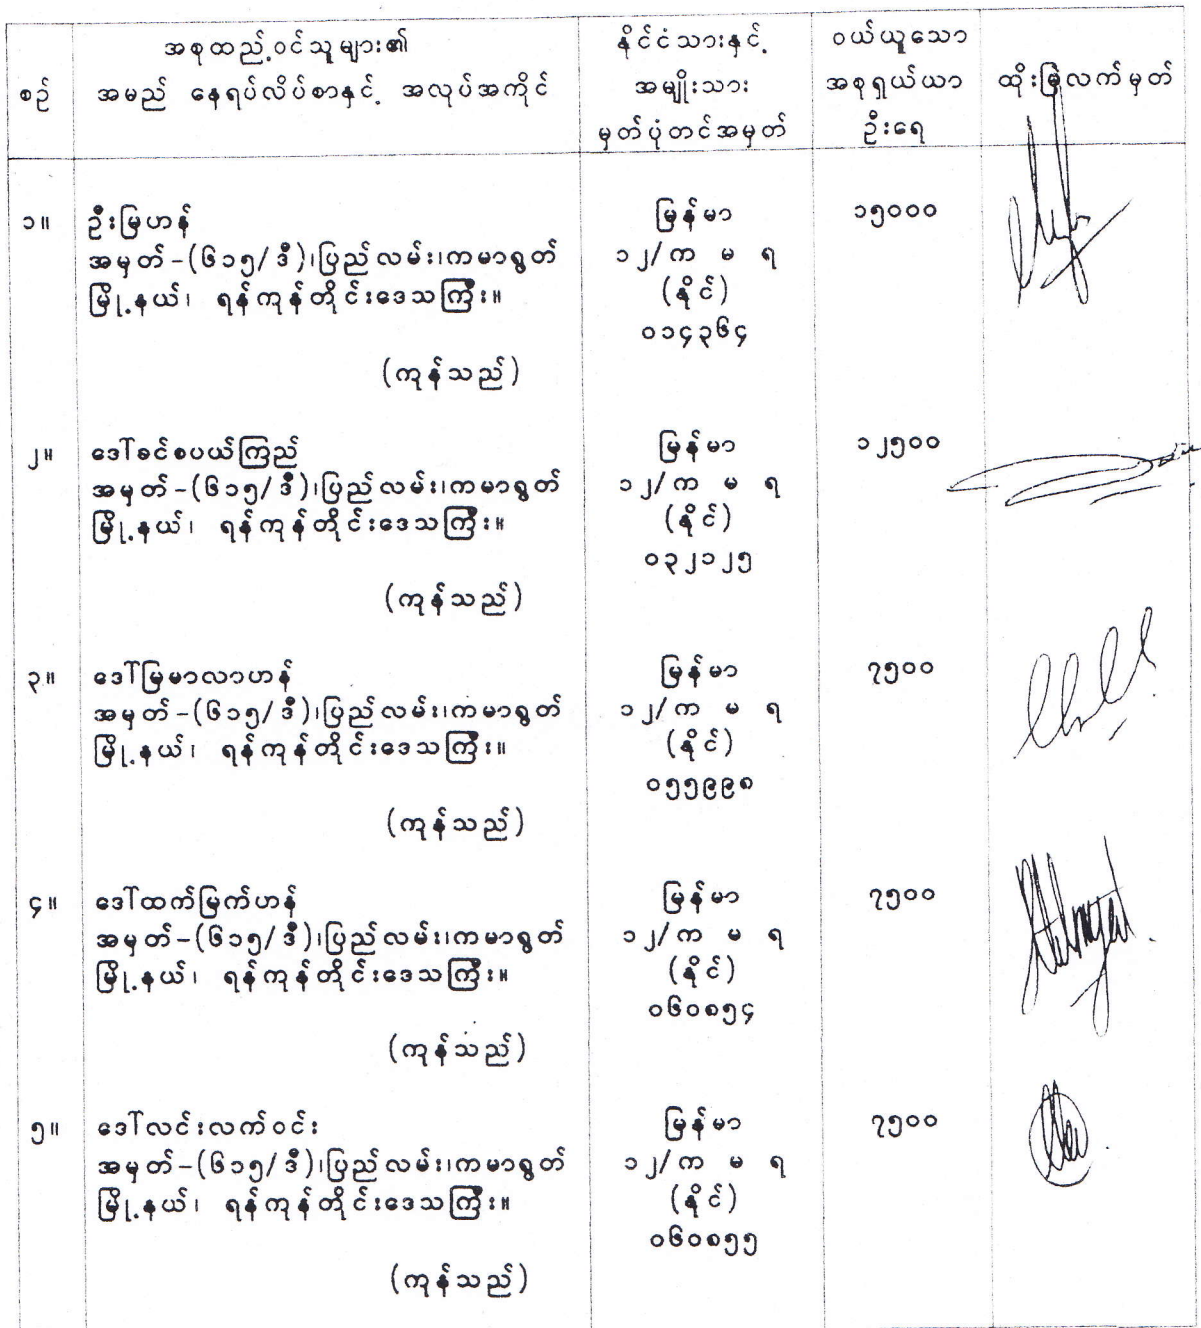 စဉ်
အစုထည့်ဝင်သူများ၏
အမည် နေရပ်လိပ်စာနှင့် အလုပ်အကိုင်
နိုင်ငံသားနှင့်
အမျိုးသား
မှတ်ပုံတင်အမှတ်
ဝယ်ယူသော
အစုရှယ်ယာ
ဦးရေ
ထိုးမြဲလက်မှတ်
၁။
ဦးမြဟန်
အမှတ်-(၆၁၅/ဒီ)၊ပြည်လမ်း၊ကမာရွတ်
မြို့နယ်၊ ရန်ကုန်တိုင်းဒေသကြီး။
(ကုန်သည်)
မြန်မာ
၁၂/က မ ရ
(နိုင်)
၀၁၄၃၆၄
၁၅၀၀၀
၂။
ဒေါ်ခင်စပယ်ကြည်
အမှတ်-(၆၁၅/ဒီ)၊ပြည်လမ်း၊ကမာရွတ်
မြို့နယ်၊ ရန်ကုန်တိုင်းဒေသကြီး။
(ကုန်သည်)
မြန်မာ
၁၂/က မ ရ
(နိုင်)
၀၃၂၁၂၅
၁၂၅၀၀
၃။
ဒေါ်မြမာလာဟန်
အမှတ်-(၆၁၅/ဒီ)၊ပြည်လမ်း၊ကမာရွတ်
မြို့နယ်၊ ရန်ကုန်တိုင်းဒေသကြီး။
(ကုန်သည်)
မြန်မာ
၁၂/က မ ရ
(နိုင်)
၀၅၅၉၉၈
၇၅၀၀
၄။
ဒေါ်ထက်မြက်ဟန်
အမှတ်-(၆၁၅/ဒီ)၊ပြည်လမ်း၊ကမာရွတ်
မြို့နယ်၊ ရန်ကုန်တိုင်းဒေသကြီး။
(ကုန်သည်)
မြန်မာ
၁၂/က မ ရ
(နိုင်)
၀၆၀၈၅၄
၇၅၀၀
၅။
ဒေါ်လင်းလက်ဝင်း
အမှတ်-(၆၁၅/ဒီ)၊ပြည်လမ်း၊ကမာရွတ်
မြို့နယ်၊ ရန်ကုန်တိုင်းဒေသကြီး။
(ကုန်သည်)
မြန်မာ
၁၂/က မ ရ
(နိုင်)
၀၆၀၈၅၅
၇၅၀၀